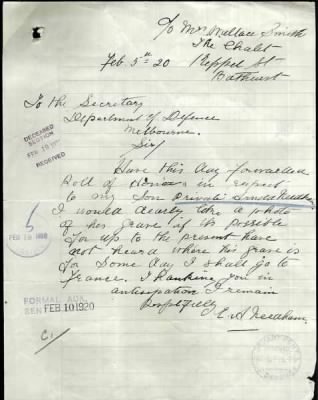 C/o Mrs Wallace Smith
The Chalet
Feb 5th 20 Keppel St
Bathurst
To the Secretary
Department of Defence
Melbourne.
Sir/
DECEASED
SECTION
FEB 10
RECEIVED
Have this day forwarded
Roll of Honor in respect
to my Son Private Needham
I would dearly like a photo
of his grave if its possible
for up to the present have
not heard where his grave is
for Some day I shall go to
France. Thanking you in
anticipation I remain
Respectfully
E. A. Needham.
FEB 10 1920
FORMAL ACK
SEN FEB 10 1920
C.